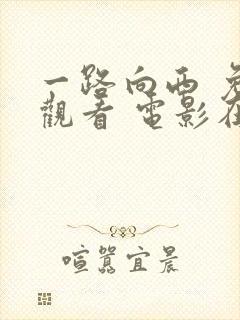 一路向西
觀看 電影
喧囂宜晨